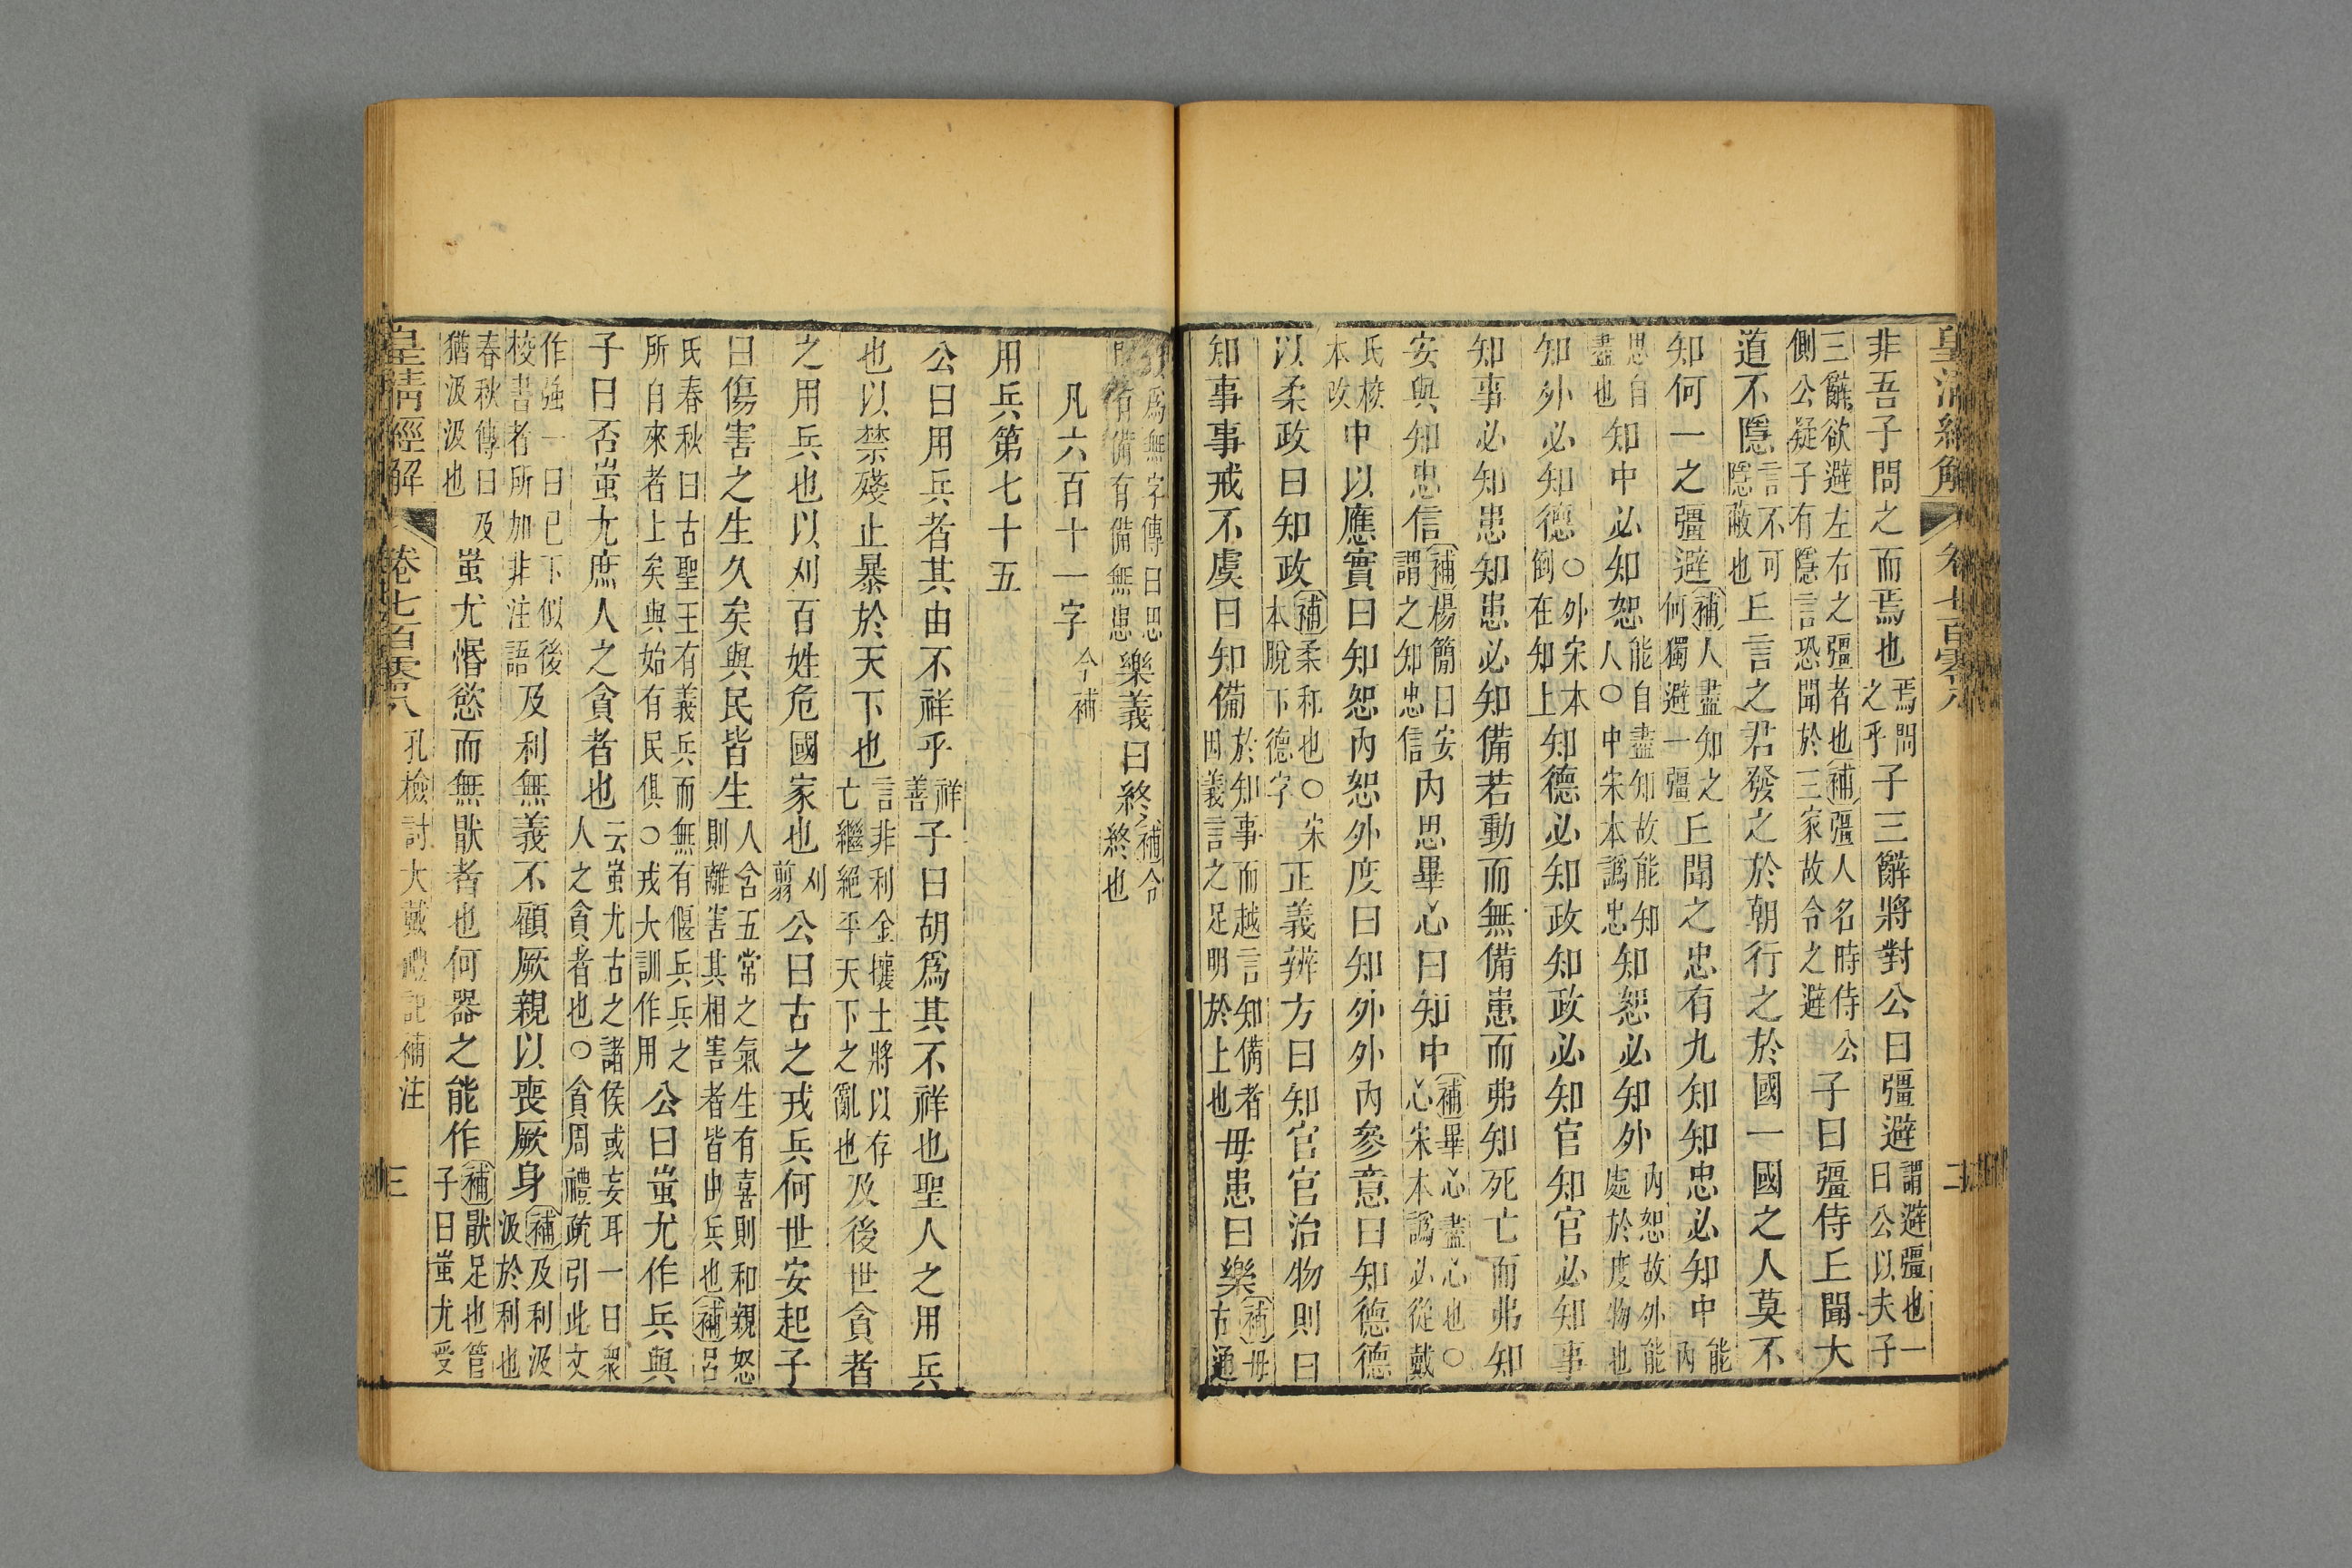 皇清經解 卷七百零八 二
非吾子問之而焉也焉問之乎子三辭將對公曰彊避謂避彊也一曰公以夫子
三辭欲避左右之彊者也補彊人名時侍公側公疑子有隱言恐聞於三家故令之避子曰彊侍丘聞大
道不隱言不可隱蔽也丘言之君發之於朝行之於國一國之人莫不
知何一之彊避補人盡知之何獨避一彊丘聞之忠有九知知忠必知中能內
思自盡也知中必知恕能自盡知故能知人○中宋本譌忠知恕必知外內恕故外能處於度物也
知外必知德○外宋本倒在知上知德必知政知政必知官知官必知事
知事必知患知患必知備若動而無備患而弗知死亡而弗知
安與知忠信補楊簡曰安謂之知忠信內思畢心曰知中補畢心盡心也○心宋本譌必從戴
氏校本改中以應實曰知恕內恕外度曰知外外內參意曰知德德
以柔政曰知政補柔和也○宋本脫下德字正義辨方曰知官官治物則曰
知事事戒不虞曰知備於知事而越言因義言之足明知備者於上也毋患曰樂補毋古通
凡六百十一字今補
用兵第七十五
公曰用兵者其由不祥乎祥善子曰胡爲其不祥也聖人之用兵
也以禁殘止暴於天下也言非利金壤土將以存亡繼絕平天下之亂也及後世貪者
之用兵也以刈百姓危國家也刈翦公曰古之戎兵何世安起子
曰傷害之生久矣與民皆生人含五常之氣生有喜則和親怒則離害其相害者皆由兵也補呂
氏春秋曰古聖王有義兵而無有偃兵兵之所自來者上矣與始有民俱○戎大訓作用公曰蚩尤作兵與
子曰否蚩尤庶人之貪者也云蚩尤古之諸侯或妄耳一曰衆人之貪者也○貪周禮疏引此文
作強一曰已下似後校書者所加非注語及利無義不顧厥親以喪厥身補及利汲汲於利也
春秋傳曰及猶汲汲也蚩尤惛慾而無猒者也何器之能作補猒足也管子曰蚩尤受
皇清經解 卷七百零八 孔檢討大戴禮記補注 三